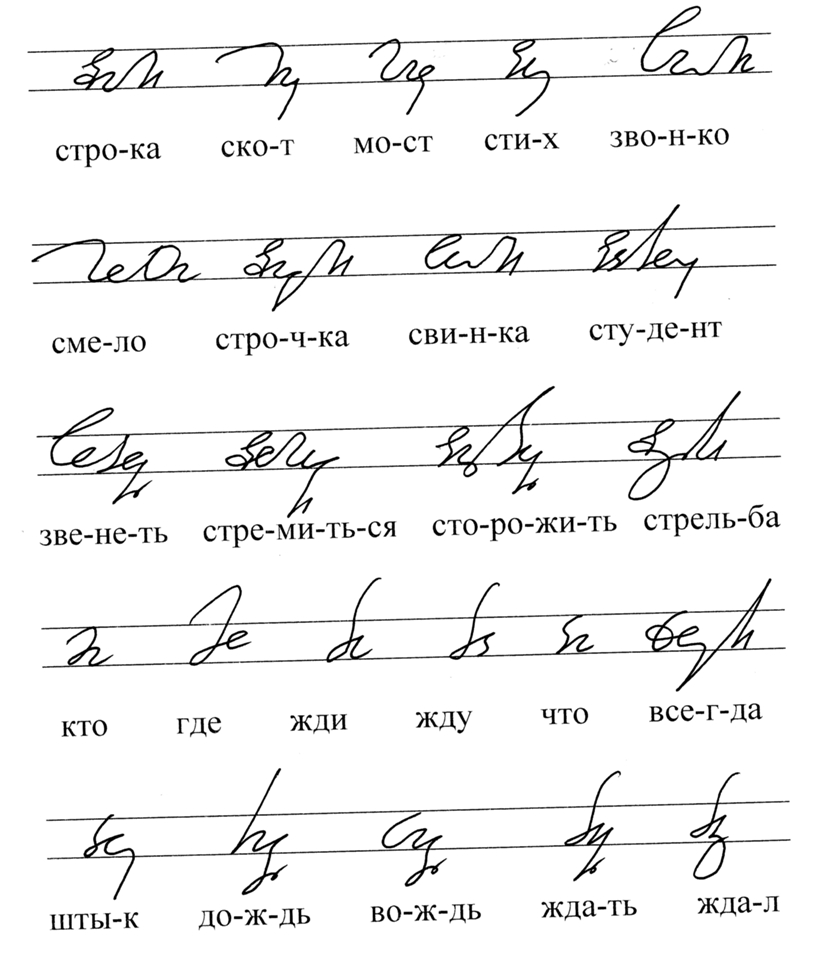 стро-ка ско-т мо-ст сти-х зво-н-ко
сме-ло стро-ч-ка сви-н-ка сту-де-нт
зве-не-ть стре-ми-ть-ся сто-ро-жи-ть стрель-ба
кто где жди жду что все-г-да
шты-к до-ж-дь во-ж-дь жда-ть жда-л